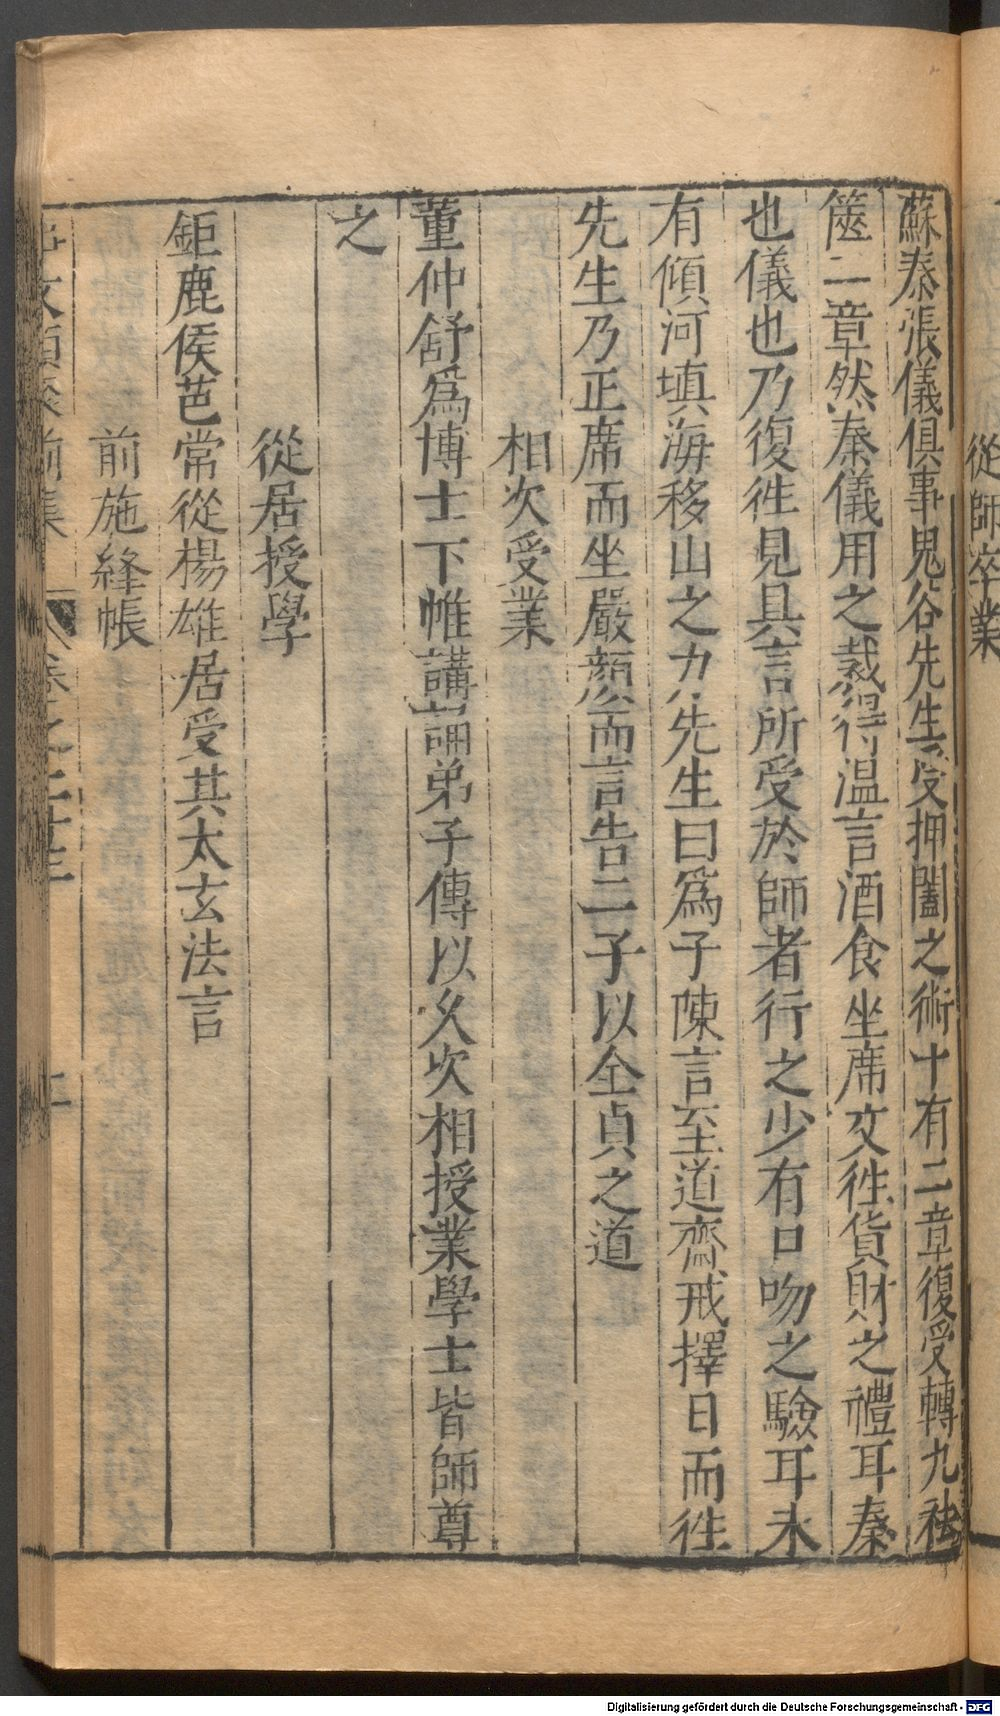 從師卒業
蘇秦張儀俱事鬼谷先生受押闔之術十有二章復受轉九祛
篋二章然秦儀用之裁得溫言酒食坐席文徃貨財之禮耳秦
也儀也乃復徃見具言所受於師者行之少有口吻之驗耳未
有傾河填海移山之力先生曰爲子陳言至道齋戒擇日而徃
先生乃正席而坐嚴顏而言告二子以全貞之道
相次受業
董仲舒爲博士下帷講誦弟子傳以久次相授業學士皆師尊
之
從居授學
鉅鹿侯芭常從楊雄居受其太玄法言
前施絳帳
前集 卷之二十五
Digitalisierung gefördert durch die Deutsche Forschungsgemeinschaft - DFG